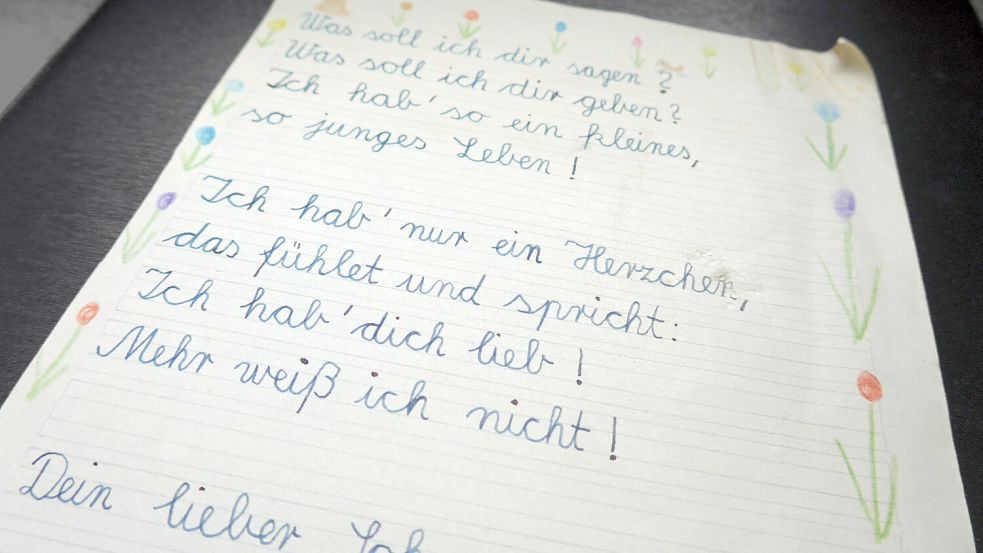 Was soll ich dir sagen?
Was soll ich dir geben?
Ich hab' so ein kleines,
so junges Leben!
Ich hab' nur ein Herzchen,
das fühlet und spricht:
Ich hab' dich lieb!
Mehr weiß ich nicht!
Dein lieber